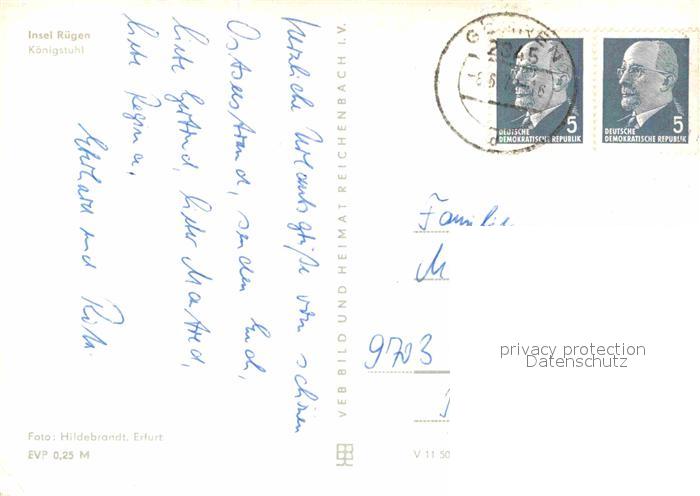 Insel Rügen
Königstuhl
Herzliche Urlaubsgrüße vom schönen
Ostseestrand, senden Euch,
liebe Gertrud, lieber Manfred,
liebe Regina,
Eberhard und Ruth.
Foto: Hildebrandt, Erfurt
EVP 0,25 M
VEB BILD UND HEIMAT REICHENBACH I.V.
V 11 50
GÖHREN
2345
5
DEUTSCHE
DEMOKRATISCHE REPUBLIK
5
DEUTSCHE
DEMOKRATISCHE REPUBLIK
Familie
M
9703
privacy protection
Datenschutz